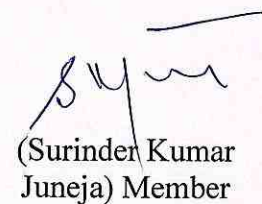 (Surinder Kumar
Juneja) Member